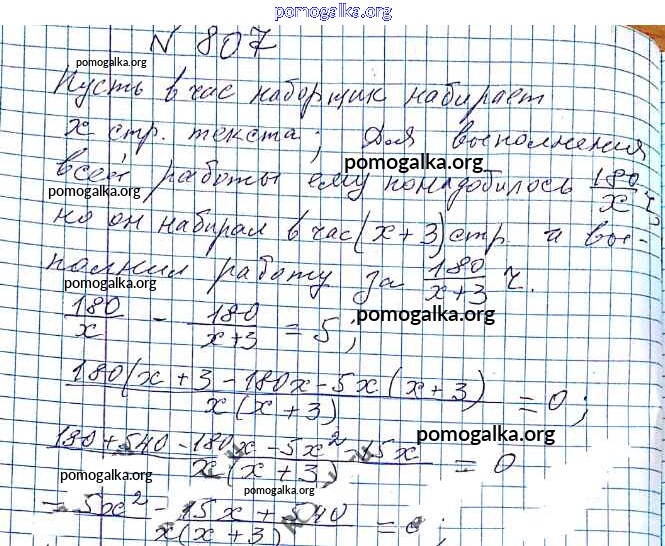 pomogalka.org
N 807
pomogalka.org
Пусть в час наборщик набирает
x стр. текста; для выполнения
pomogalka.org
всей работы ему понадобилось 180/x ч,
pomogalka.org
но он набирал в час (x+3) стр. и вы-
полнил работу за 180/(x+3) ч.
pomogalka.org
180/x - 180/(x+3) = 5;
pomogalka.org
180(x+3-180x-5x(x+3)/x(x+3) = 0;
180+540-180x-5x²-15x/x(x+3) = 0
pomogalka.org
pomogalka.org
pomogalka.org
= 5x²-15x+540/x(x+3) = 0;